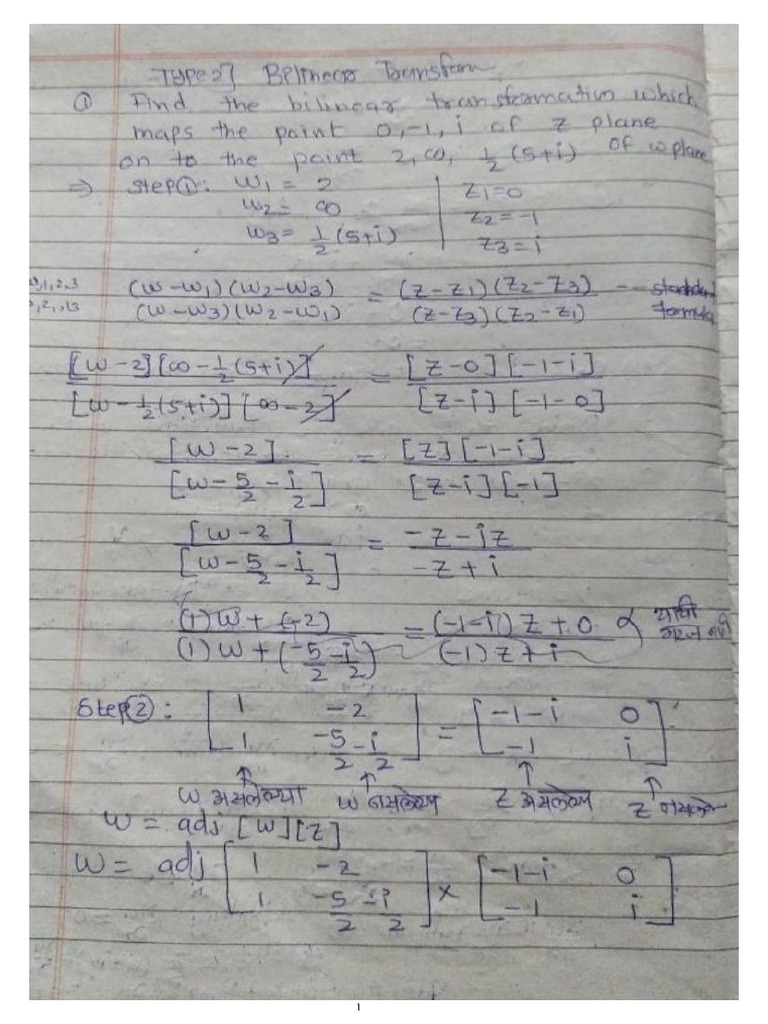 Type 2] Bilinear Transform
① Find the bilinear transformation which
maps the point 0, -1, i of z plane
on to the point 2, ∞, 1/2 (5+i) of w plane
⇒ Step①: w1 = 2 | z1 = 0
w2 = ∞ | z2 = -1
w3 = 1/2 (5+i) | z3 = i
(w-w1)(w2-w3) / (w-w3)(w2-w1) = (z-z1)(z2-z3) / (z-z3)(z2-z1) -- standard formula
[w-2][∞-1/2(5+i)] / [w-1/2(5+i)][∞-2] = [z-0][-1-i] / [z-i][-1-0]
[w-2] / [w-5/2-i/2] = [z][-1-i] / [z-i][-1]
[w-2] / [w-5/2-i/2] = -z-iz / -z+i
(1)w+(-2) / (1)w+(-5/2-i/2) = (-1-i)z+0 / (-1)z+i
Step②: [1 -2; 1 -5/2-i/2] = [-1-i 0; -1 i]
w असलेल्या w नसलेल्या z असलेल्या z नसलेल्या
w = adj [w][z]
w = adj [1 -2; 1 -5/2-i/2] × [-1-i 0; -1 i]
१